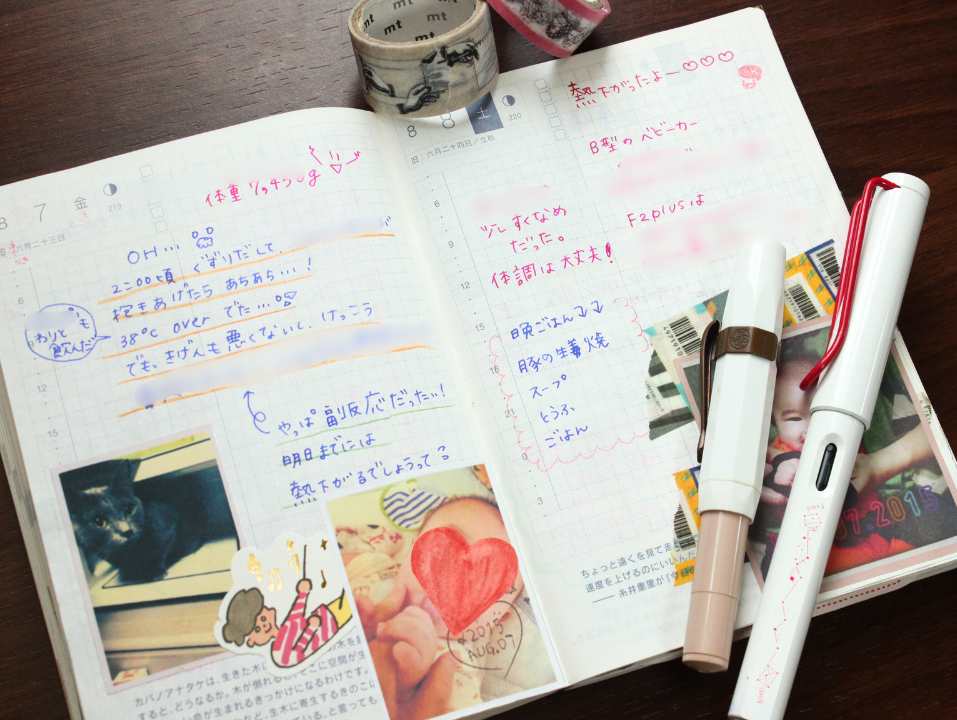 mt
mt
mt
8
7
金
219
六月二十三日
体重
OH...
2:00頃 ぐずりだして、
抱きあげたら あちあち…!
38℃ over でた…
でも、きげんも悪くないし、けっこう
わりと
も
飲んだ
やっぱ副反応だったぃ!
明日までには
熱下がるでしょうって
6
12
15
2015
AUG.07
カバノアナタケは、生きた木に
の木を
すると、どうなるか。木が倒れると、そこに空間が生
い命が生まれるきっかけになるわけです。
など、生木に寄生するきのこに
ている。と言っても
8
8
土
220
旧:六月二十四日/立秋
熱下がったよー♡♡♡
B型のベビーカー
F2plusは
少しすくなめ
だった。
体調は大丈夫!
晩ごはん↓↓
豚の生姜焼
スープ
とうふ
ごはん
6
9
12
15
21
0
3
ちょっと遠くを見て走
速度を上げるのにいいんだ
── 糸井重里が『今日
07 2015